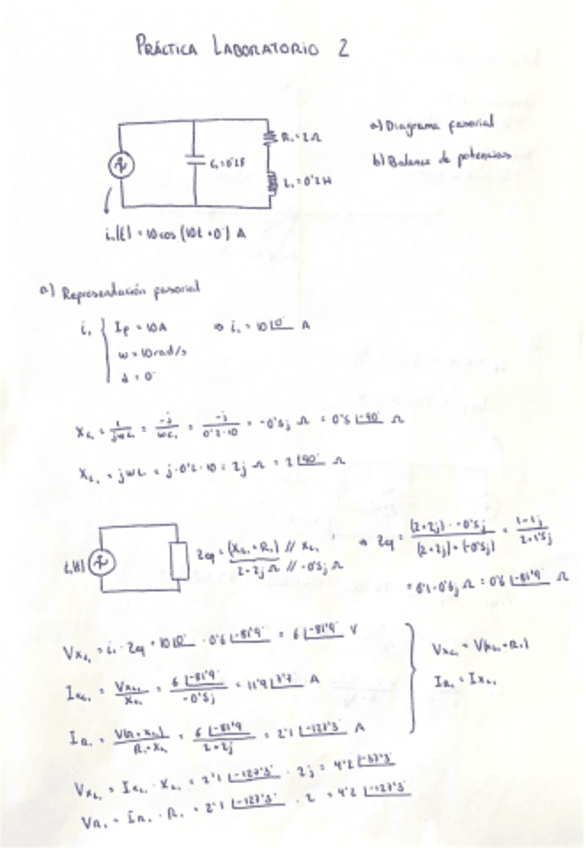 PRÁCTICA LABORATORIO 2
a) Diagrama fasorial
b) Balance de potencias
R₁=2Ω
C₁=0'2F
L₁=0'2H
i₁(t) = 10cos (10t+0°) A
a) Representación fasorial
i₁ { Ip = 10A ⇒ i₁ = 10∠0° A
ω = 10rad/s
α = 0°
Xc₁ = 1/jωC₁ = -j/ωC₁ = -j/0'2·10 = -0'5j Ω = 0'5∠-90° Ω
XL₁ = jωL = j·0'2·10 = 2j Ω = 2∠90° Ω
i₁(t)
Zeq = (XL₁+R₁) // Xc₁ ⇒ Zeq = (2+2j)·-0'5j/(2+2j)+(-0'5j) = 1-1j/2+1'5j
2+2j Ω // -0'5j Ω
= 0'1-0'6j Ω = 0'6∠-81'9° Ω
Vxc₁ = i₁·Zeq = 10∠0° · 0'6∠-81'9° = 6∠-81'9° V
Ixc₁ = Vxc₁/Xc₁ = 6∠-81'9°/-0'5j = 11'9∠7'7° A
IR₁ = V(R₁+XL₁)/R₁+XL₁ = 6∠-81'9/2+2j = 2'1∠-127'3° A
Vxc₁ = V(XL₁+R₁)
IR₁ = IXL₁
VXL₁ = IXL₁ · XL₁ = 2'1∠-127'3° · 2j = 4'2∠-37'3°
VR₁ = IR₁ · R₁ = 2'1∠-127'3° · 2 = 4'2∠-127'3°